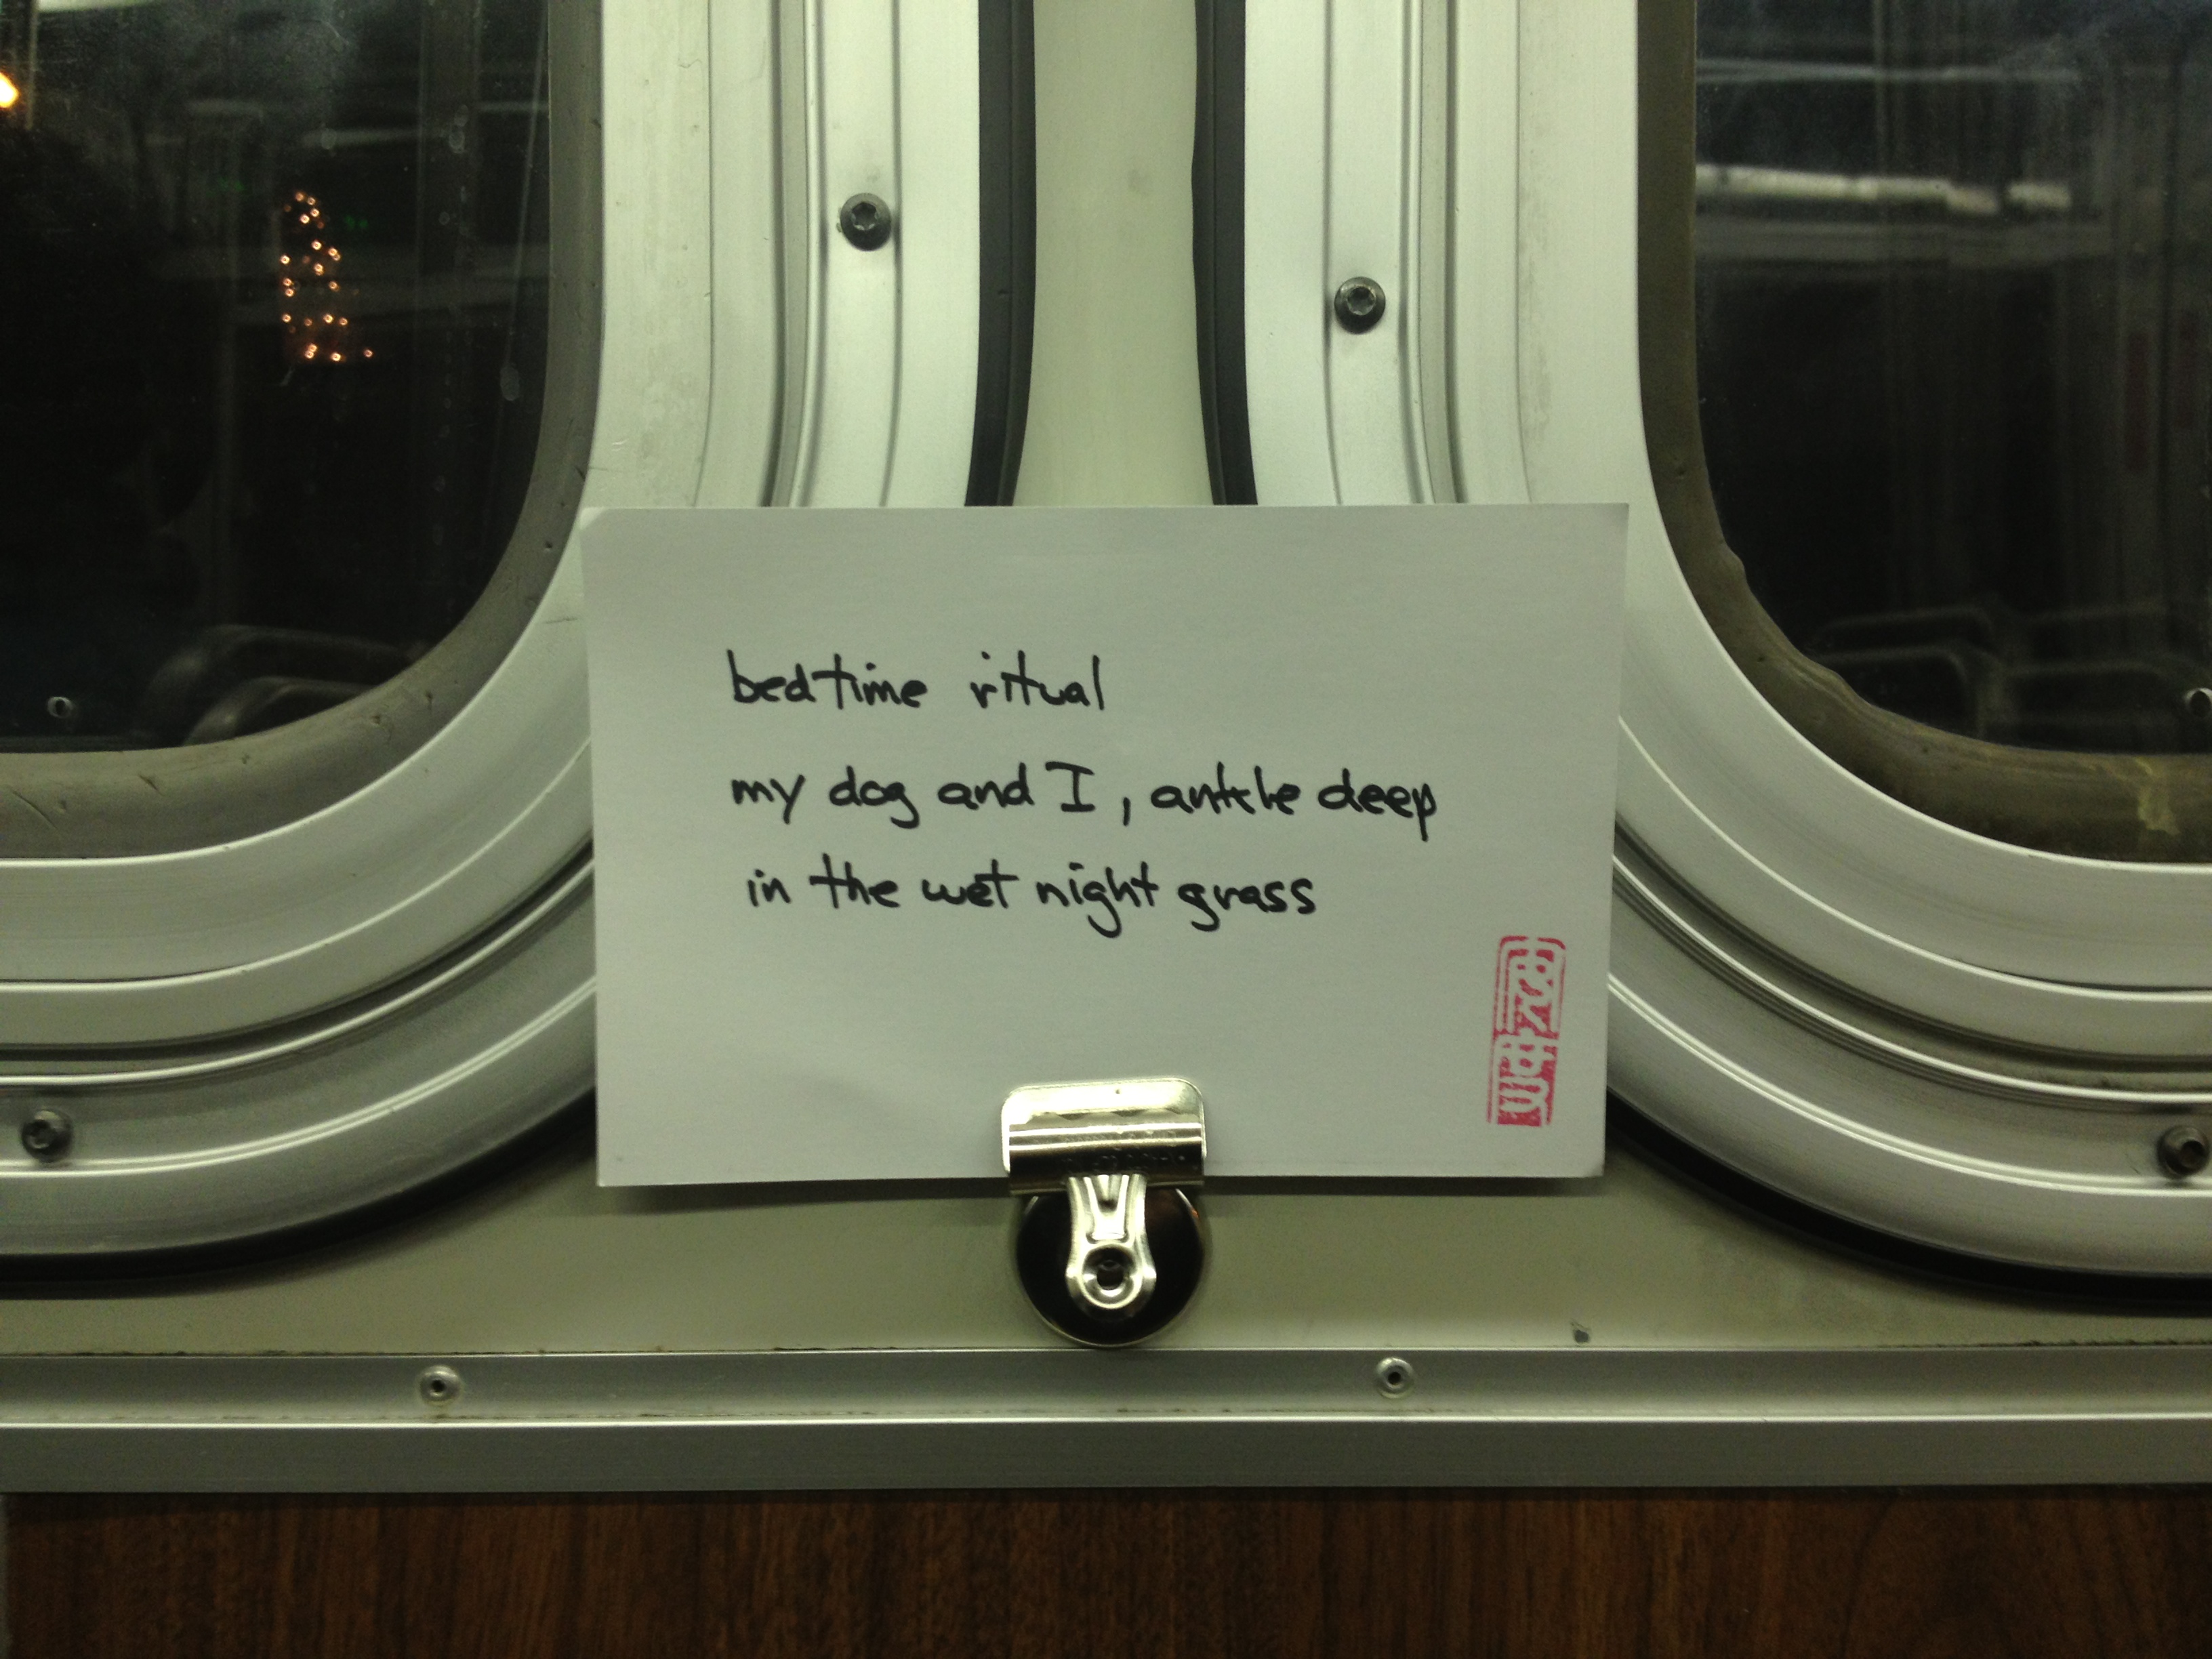 bedtime ritual
my dog and I, ankle deep
in the wet night grass